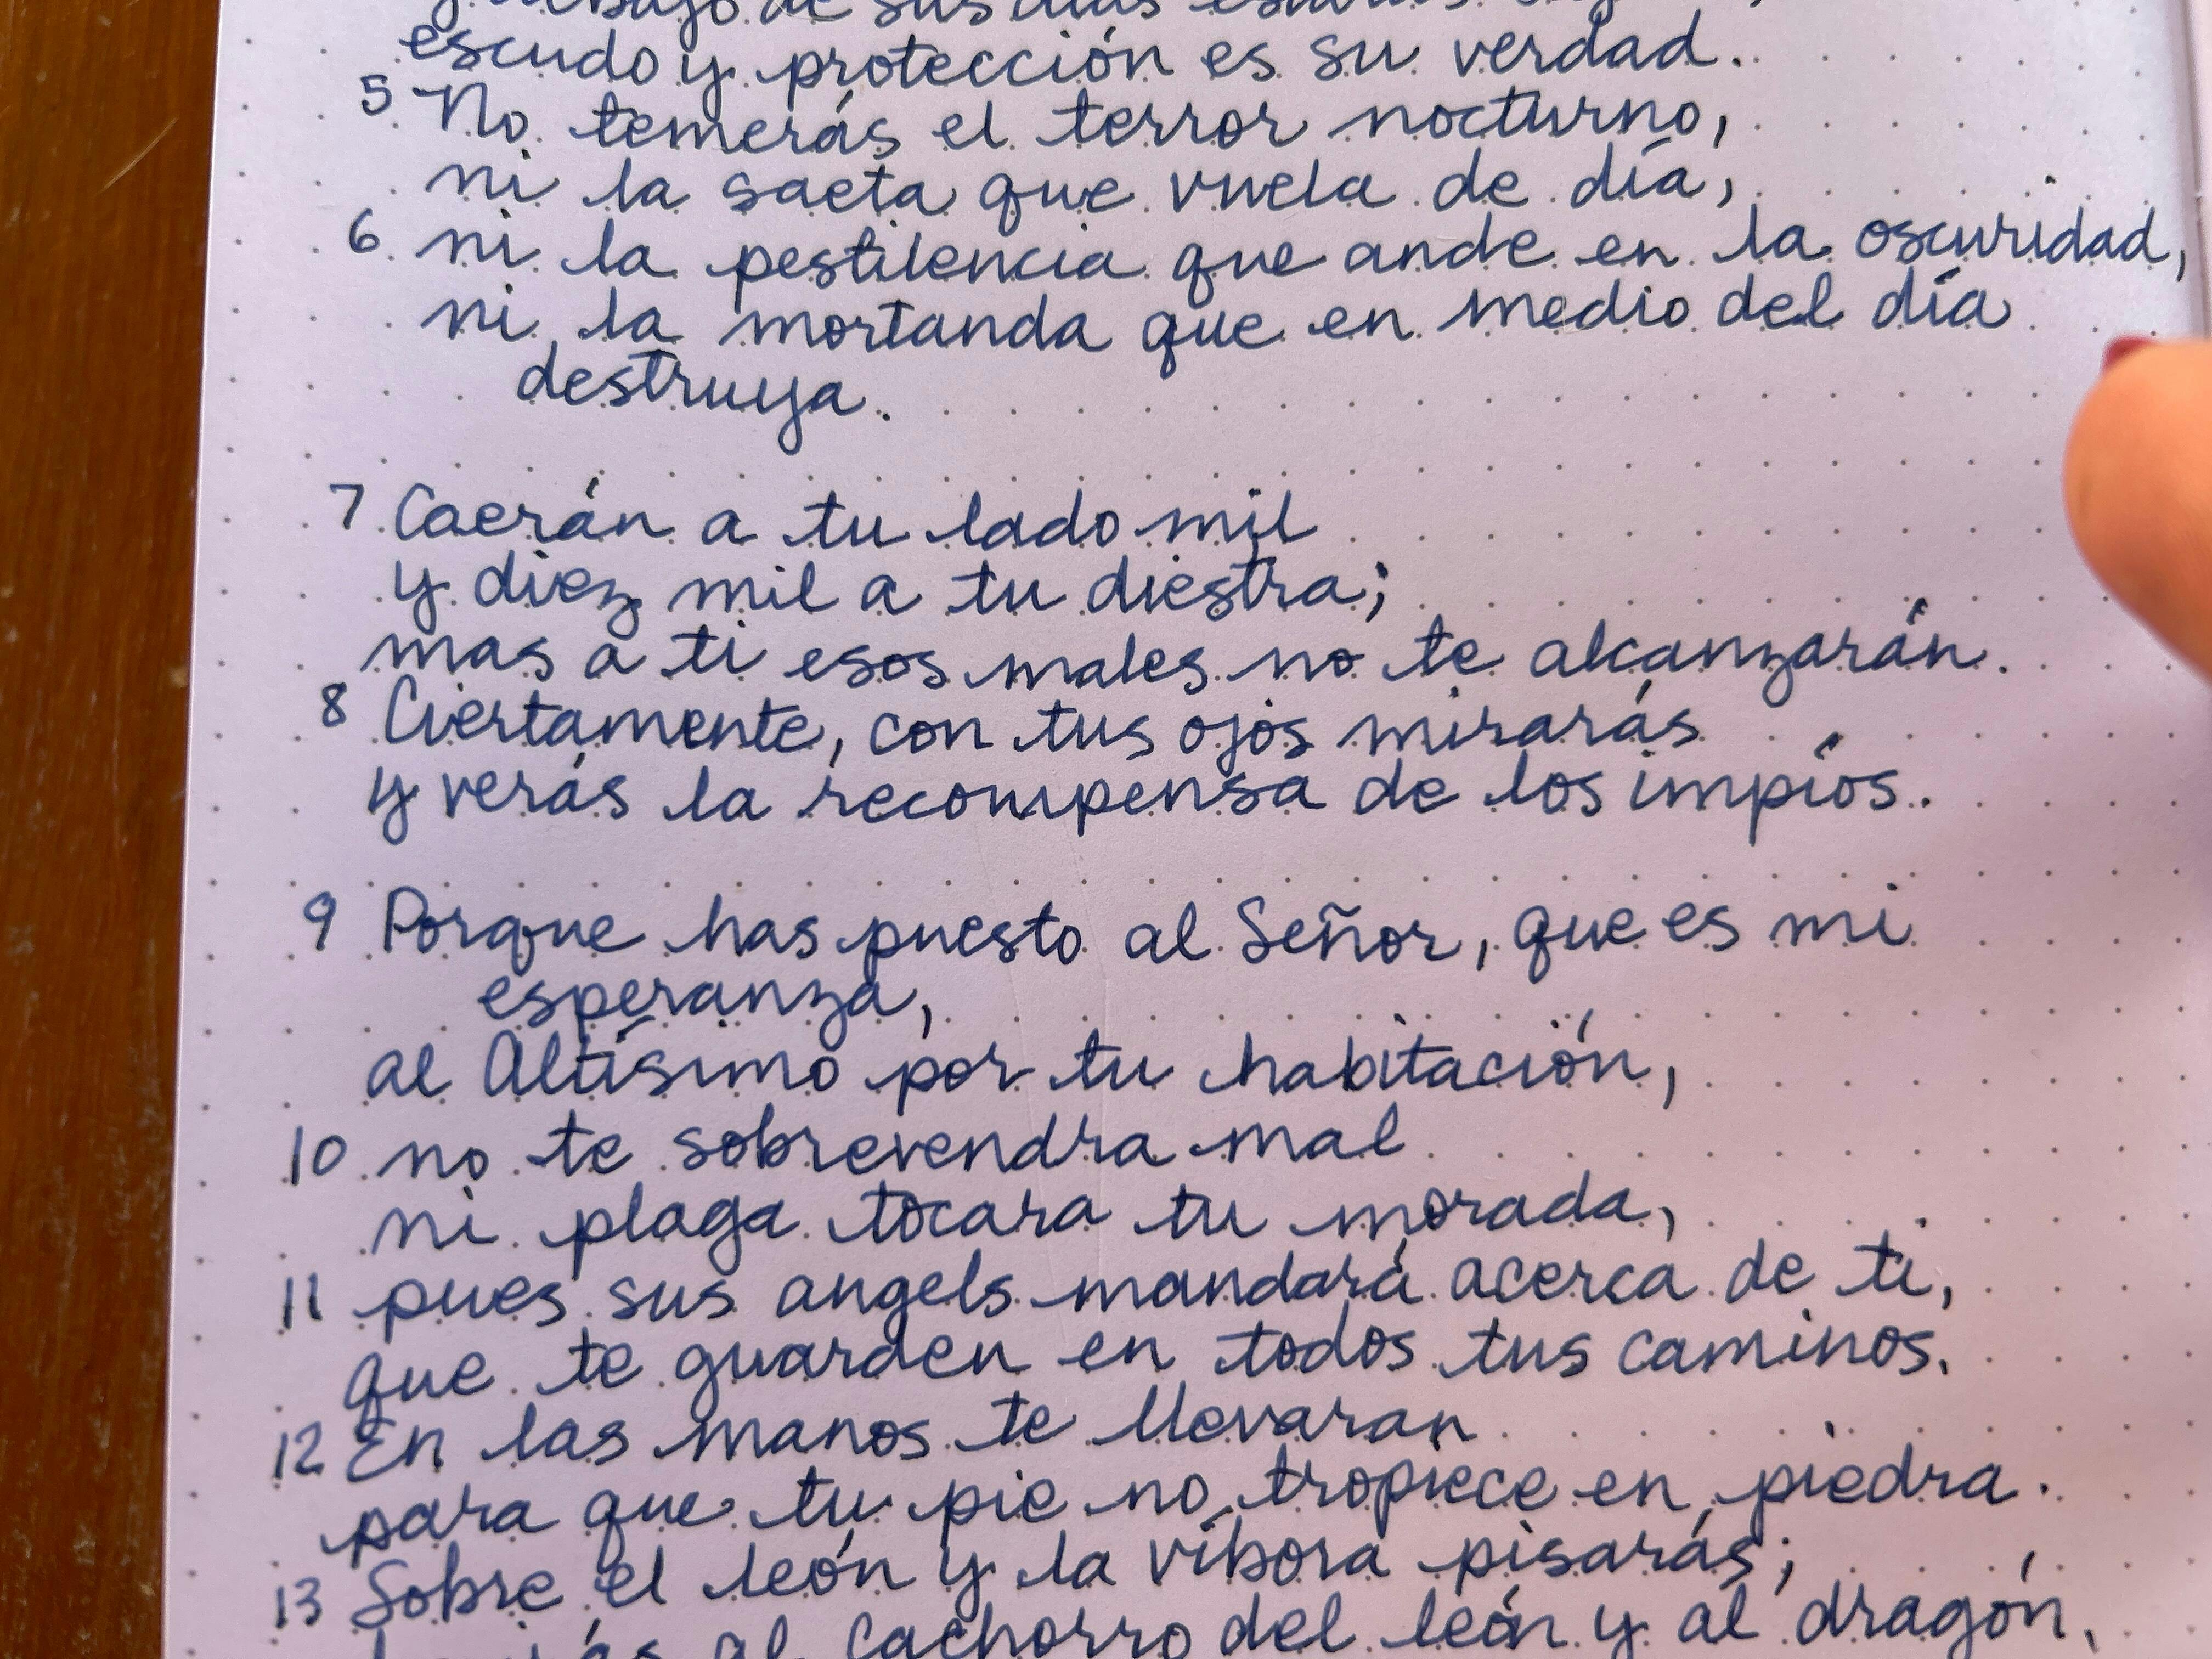 debajo de sus alas estarás
escudo y protección es su verdad.
5 No temerás el terror nocturno,
ni la saeta que vuela de día,
6 ni la pestilencia que ande en la oscuridad,
ni la mortanda que en medio del día
destruya.
7 Caerán a tu lado mil
y diez mil a tu diestra;
mas a ti esos males no te alcanzarán.
8 Ciertamente, con tus ojos mirarás
y verás la recompensa de los impíos.
9 Porque has puesto al Señor, que es mi
esperanza,
al Altísimo por tu habitación,
10 no te sobrevendra mal
ni plaga tocara tu morada,
11 pues sus angels mandará acerca de ti,
que te guarden en todos tus caminos.
12 En las manos te llevaran
para que tu pie no tropiece en piedra.
13 Sobre el león y la víbora pisarás;
al cachorro del león y al dragón.